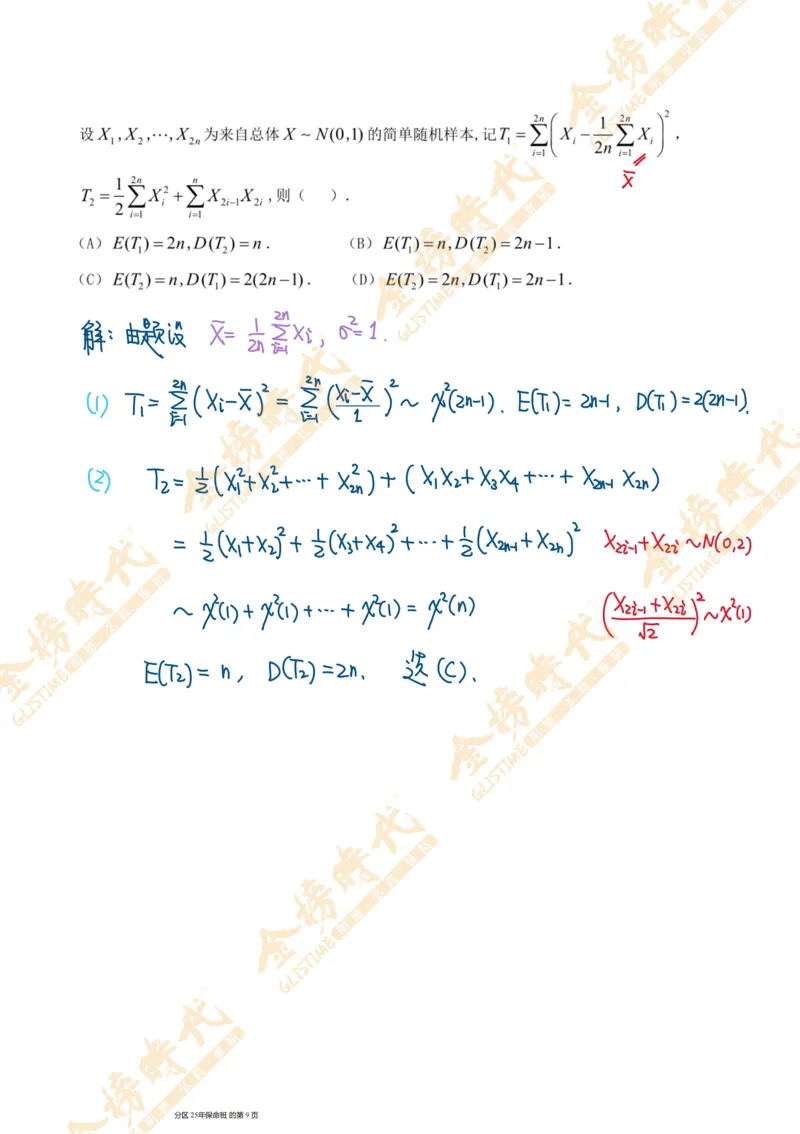 设 X₁,X₂,⋯,X₂ₙ 为来自总体 X ~ N(0,1) 的简单随机样本,记 T₁ = ∑_{i=1}^{2n} (Xᵢ − 1/(2n) ∑_{i=1}^{2n} Xᵢ)²,
X̄
T₂ = 1/2 ∑_{i=1}^{2n} Xᵢ² + ∑_{i=1}^{n} X_{2i−1}X_{2i} ,则( ).
(A) E(T₁)=2n,D(T₂)=n. (B) E(T₁)=n,D(T₂)=2n−1.
(C) E(T₂)=n,D(T₁)=2(2n−1). (D) E(T₂)=2n,D(T₁)=2n−1.
解:由题设 X̄ = 1/(2n) ∑_{i=1}^{2n} Xᵢ, σ²=1.
(1) T₁ = ∑_{i=1}^{2n} (Xᵢ−X̄)² = ∑_{i=1}^{2n} ((Xᵢ−X̄)/1)² ~ χ²(2n−1). E(T₁)=2n−1, D(T₁)=2(2n−1).
(2) T₂ = 1/2(X₁²+X₂²+⋯+X₂ₙ²)+(X₁X₂+X₃X₄+⋯+X₂ₙ₋₁X₂ₙ)
= 1/2(X₁+X₂)²+1/2(X₃+X₄)²+⋯+1/2(X₂ₙ₋₁+X₂ₙ)² X_{2i−1}+X_{2i} ~ N(0,2)
~ χ²(1)+χ²(1)+⋯+χ²(1)=χ²(n) ((X_{2i−1}+X_{2i})/√2)² ~ χ²(1)
E(T₂)=n, D(T₂)=2n. 选(C).
金榜時代
GLISTIME
分区 25年保命班 的第 9 页